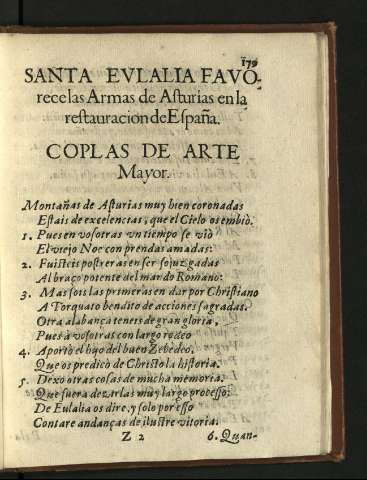 179
SANTA EVLALIA FAVO-
rece las Armas de Asturias en la
restauracion de España.
COPLAS DE ARTE
Mayor.
Montañas de Asturias muy bien coronadas
Estais de excelencias, que el Cielo os embiò.
1. Pues en vosotras vn tiempo se viò
El viejo Noe con prendas amadas:
2. Fuisteis postreras en ser sojuzgadas
Al braço potente del mando Romano:
3. Mas sois las primeras en dar por Christiano
A Torquato bendito de acciones sagradas.
Otra alabança teneis de gran gloria,
Pues à vosotras con largo rodeo
4. Aportò el hijo del buen Zebedeo,
Que os predicò de Christo la historia.
5. Dexo otras cosas de mucha memoria,
Que fuera dezirlas muy largo processo:
De Eulalia os dire, y solo por esso
Contare andanças de ilustre vitoria.
Z 2
6. Quan-